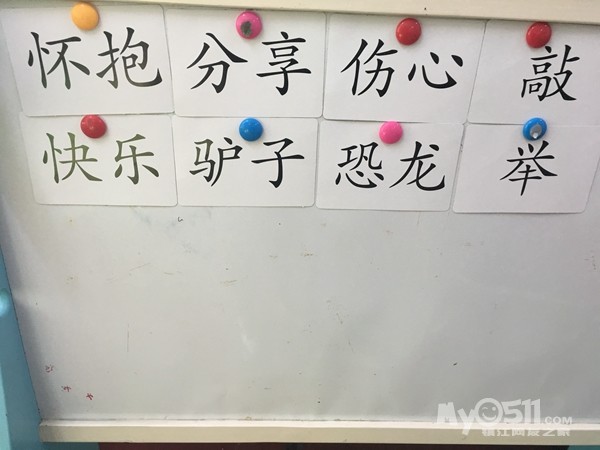 怀抱 分享 伤心 敲
快乐 驴子 恐龙 举
My0511.COM
镇江网友之家